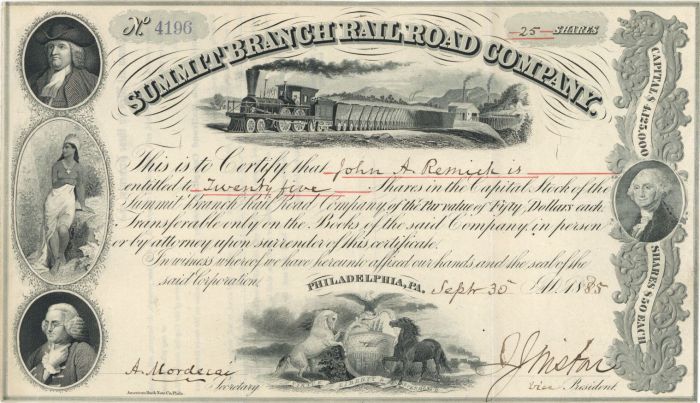 No 4196
25 SHARES
SUMMIT BRANCH RAIL ROAD COMPANY.
CAPITAL $4,125,000
This is to Certify, that John A. Remick is
entitled to Twenty five Shares in the Capital Stock of the
Summit Branch Rail Road Company, of the Par value of Fifty Dollars each.
Transferable only on the Books of the said Company, in person
or by attorney upon surrender of this certificate.
In witness whereof we have hereunto affixed our hands and the seal of the
said Corporation.
SHARES $50 EACH
PHILADELPHIA, PA. Sept 30 A.D. 1885
A. Mordecai
Secretary
Vice President.
American Bank Note Co. Phila.